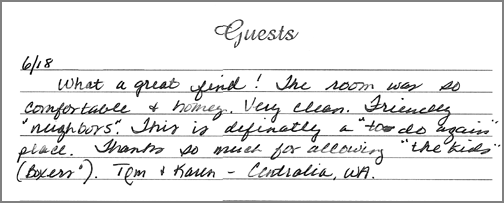 Guests
6/18
What a great find! The room was so
comfortable & homey. Very clean. Friendly
"neighbors". This is definatly a "to do again"
place. Thanks so much for allowing "the kids"
(Boxers"). Tom & Karen - Centralia, WA.